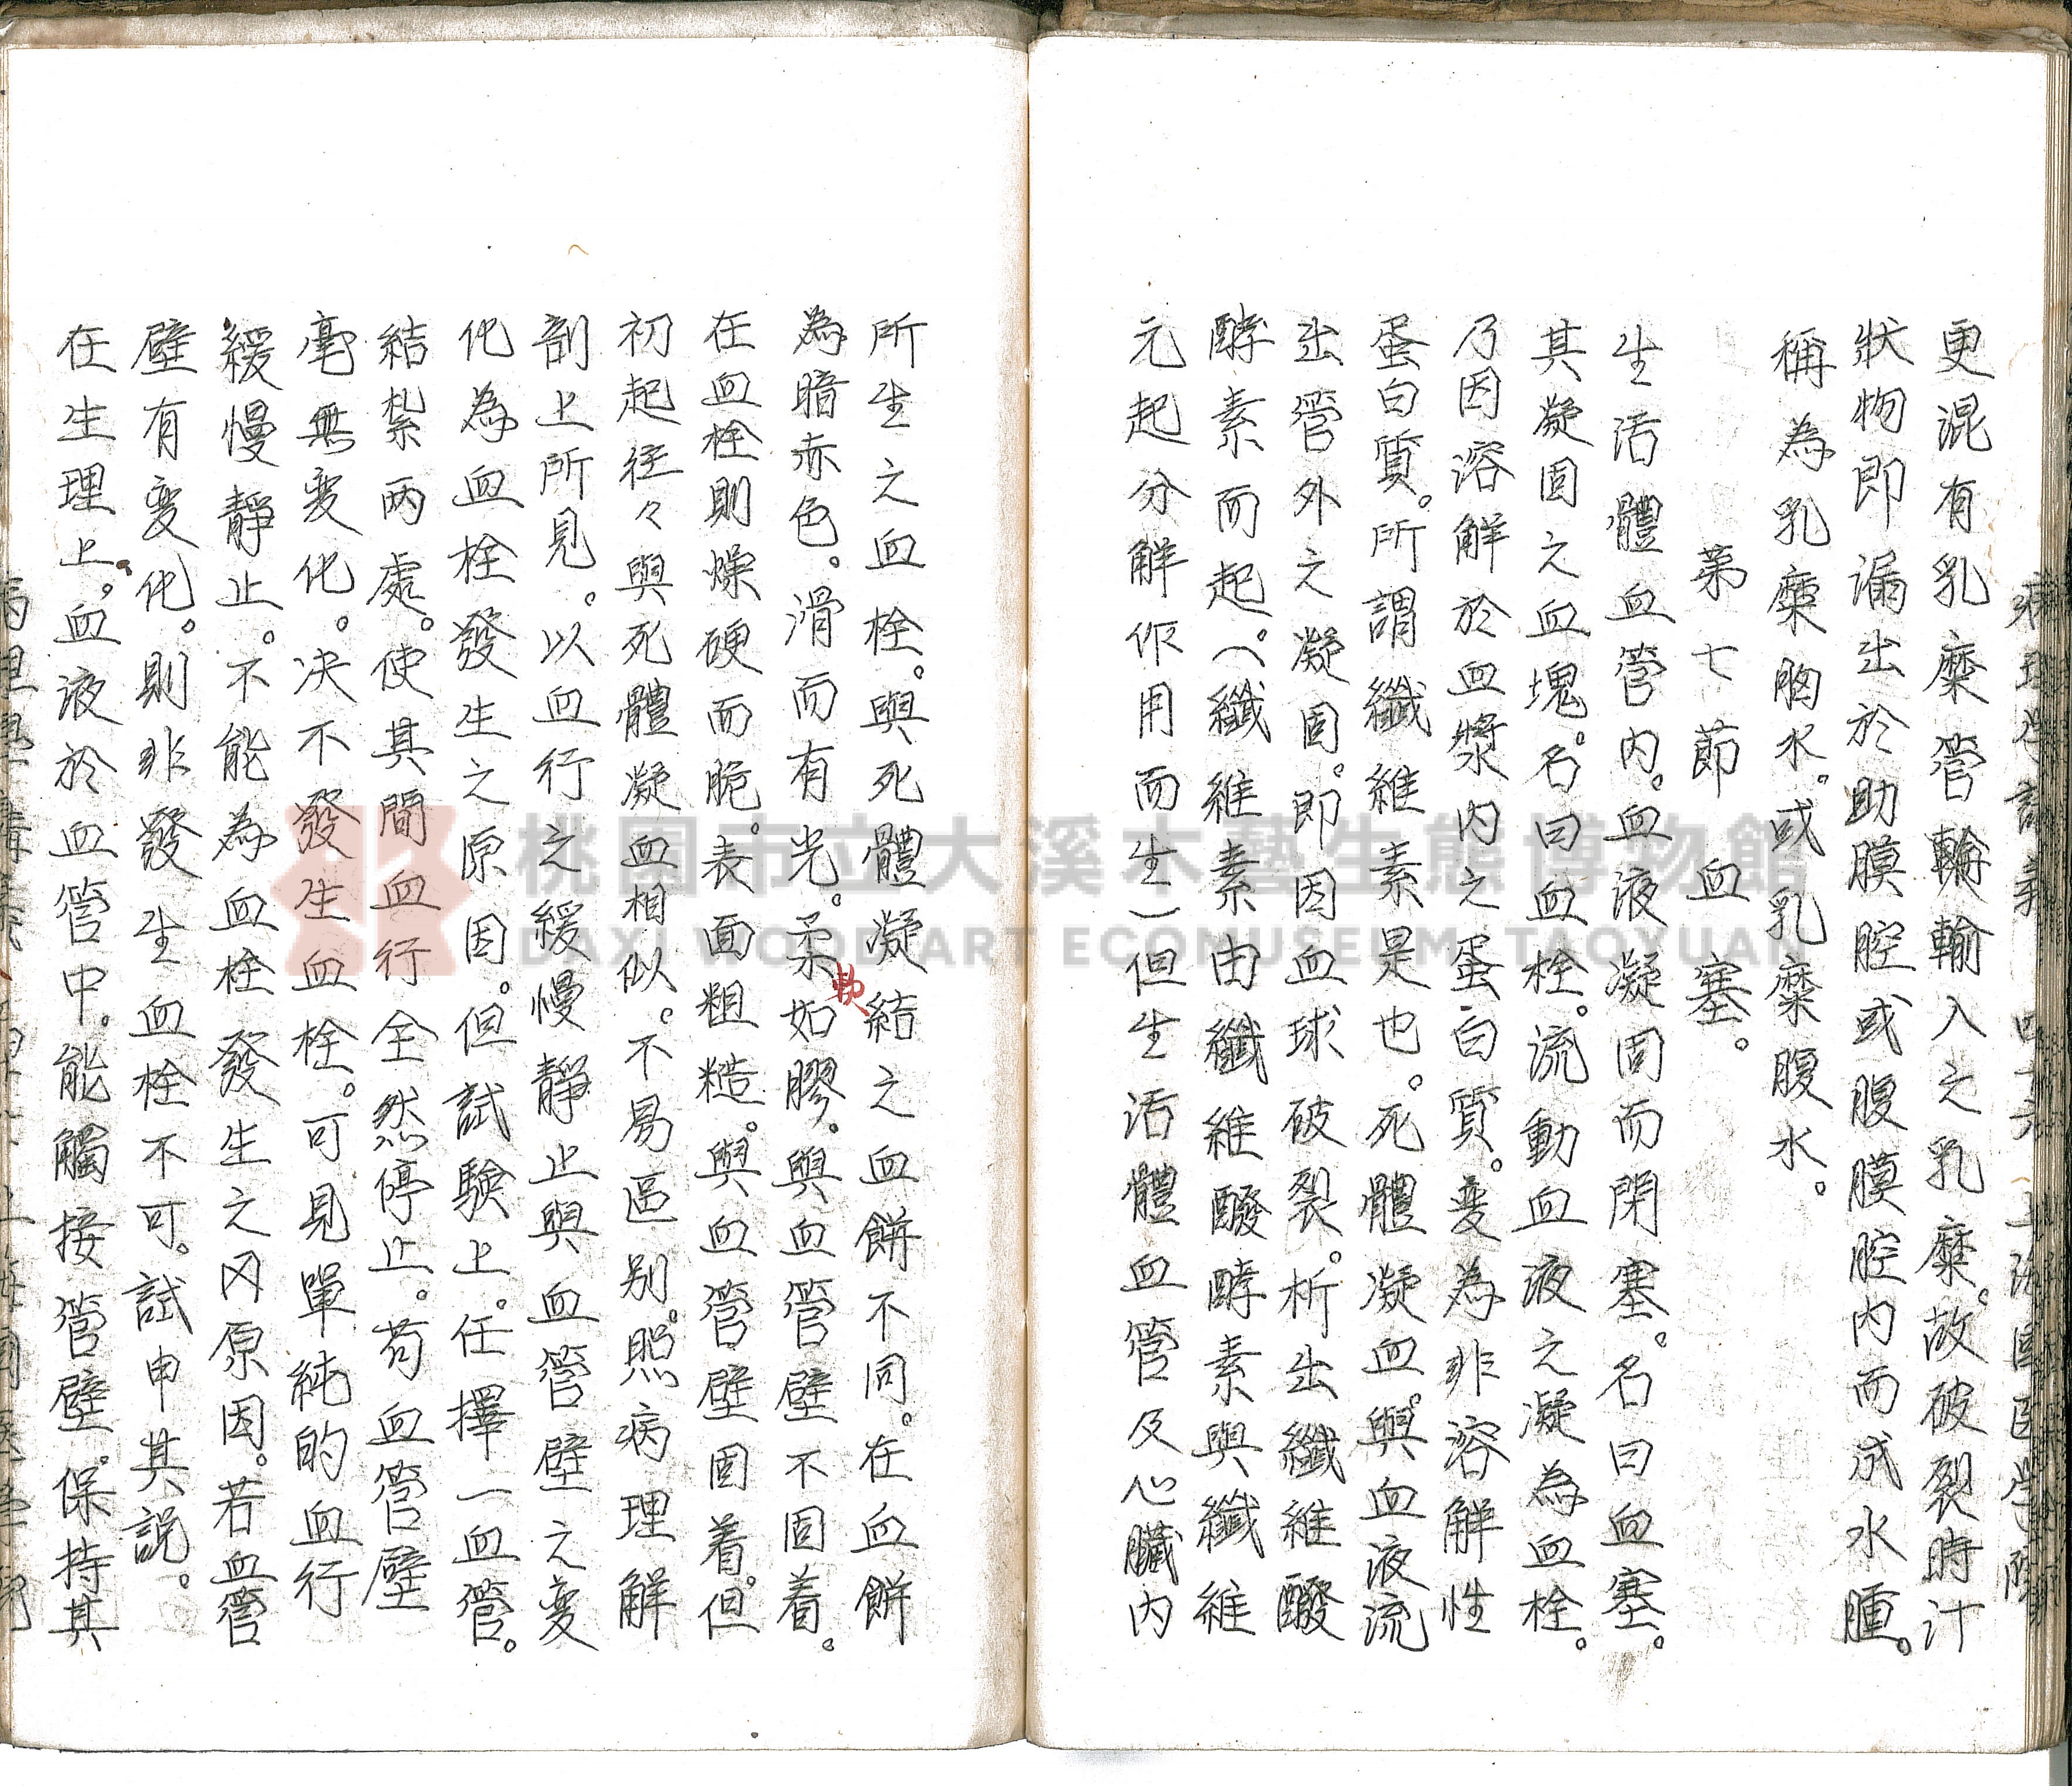 病理學講義 四十六 上海國醫學院
更混有乳糜管輸輸入之乳糜。故破裂時汁
狀物即漏出於肋膜腔或腹膜腔內而成水腫。
稱為乳糜胸水。或乳糜腹水。
第七節 血塞。
生活體血管內。血液凝固而閉塞。名曰血塞。
其凝固之血塊。名曰血栓。流動血液之凝為血栓。
乃因溶解於血漿內之蛋白質。变為非溶解性
蛋白質。所謂纖維素是也。死體凝血。與血液流
出管外之凝固。即因血球破裂。析出纖維醱
酵素而起。(纖維素由纖維醱酵素與纖維
元起分解作用而生)但生活體血管及心臟內
所生之血栓。與死體凝結之血餅不同。在血餅
為暗赤色。滑而有光。柔軟如膠。與血管壁不固着。
在血栓則燥硬而脆。表面粗糙。與血管壁固着。但
初起往々與死體凝血相似。不易區別。照病理解
剖上所見。以血行之緩慢靜止與血管壁之变
化為血栓發生之原因。但試驗上。任擇一血管。
結紮兩處。使其間血行全然停止。苟血管壁
毫無变化。決不發生血栓。可見單純的血行
緩慢靜止。不能為血栓發生之原因。若血管
壁有变化。則非發生血栓不可。試申其說。
在生理上。血液於血管中。能觸接管壁。保持其
桃園市立大溪木藝生態博物館
DAXI WOOD ART ECOMUSEUM, TAOYUAN